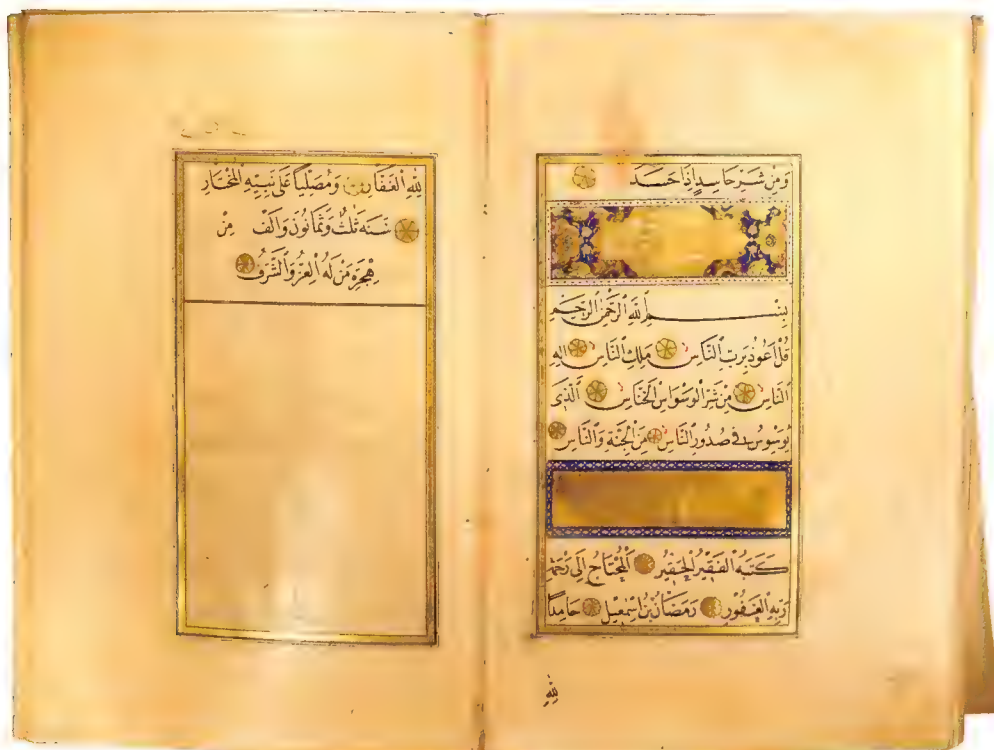 وَمِنْ شَرِّ حَاسِدٍ اِذَا حَسَدَ
بِسْمِ اللهِ الرَّحْمٰنِ الرَّحِيمِ
قُلْ اَعُوذُ بِرَبِّ النَّاسِ مَلِكِ النَّاسِ اِلٰهِ
النَّاسِ مِنْ شَرِّ الْوَسْوَاسِ الْخَنَّاسِ اَلَّذِى
يُوَسْوِسُ فِى صُدُورِ النَّاسِ مِنَ الْجِنَّةِ وَالنَّاسِ
كَتَبَهُ الْفَقِيرُ الْحَقِيرُ اَلْمُحْتَاجُ اِلَى رَحْمَةِ
رَبِّهِ الْغَفُورِ رَمَضَانُ بْنُ اِسْمٰعِيلَ حَامِدًا
لِلّٰهِ
لِلّٰهِ الْغَفَّارِ وَمُصَلِّيًا عَلَى نَبِيِّهِ الْمُخْتَارِ
سَنَةَ ثَلٰثٍ وَثَمَانُونَ وَاَلْفٍ مِنْ
هِجْرَةِ مَنْ لَهُ الْعِزُّ وَالشَّرَفُ